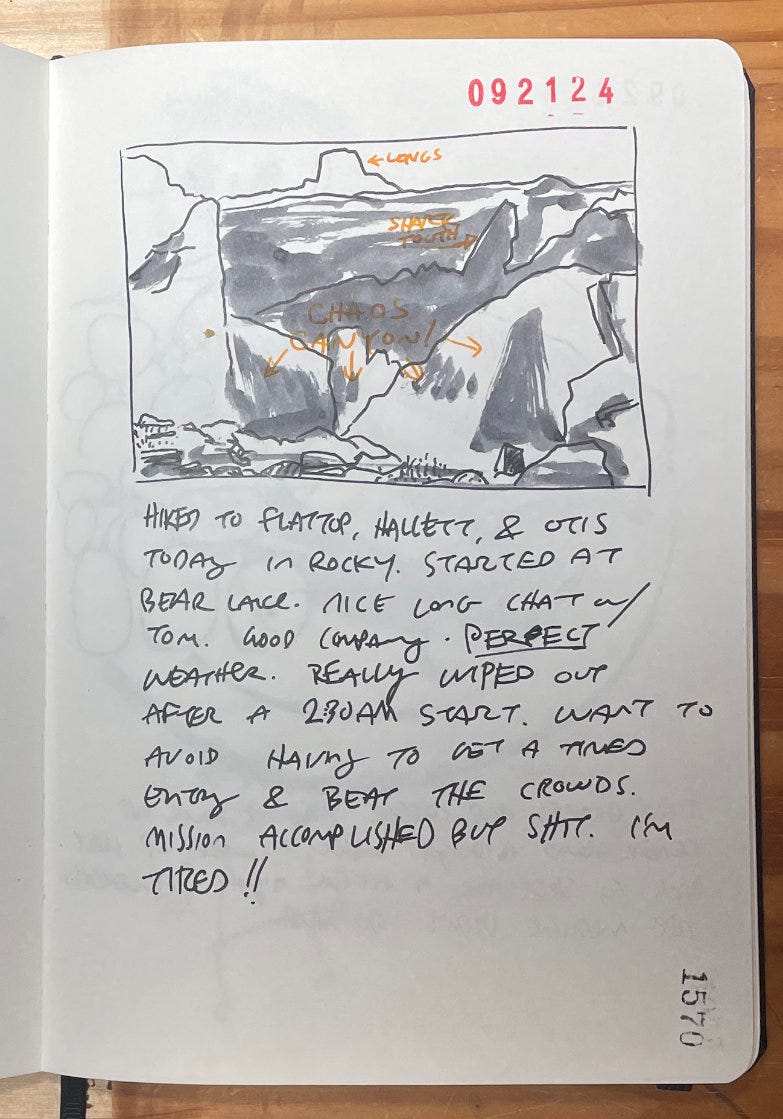 092124
←LONGS
SHARK
TOOTH
CHAOS
CANYON!
HIKED TO FLATTOP, HALLETT, & OTIS
TODAY IN ROCKY. STARTED AT
BEAR LAKE. NICE LONG CHAT W/
TOM. GOOD COMPANY. PERFECT
WEATHER. REALLY WIPED OUT
AFTER A 2:30AM START. WANT TO
AVOID HAVING TO GET A TIMED
ENTRY & BEAT THE CROWDS.
MISSION ACCOMPLISHED BUT SHIT. I'M
TIRED!!
1570